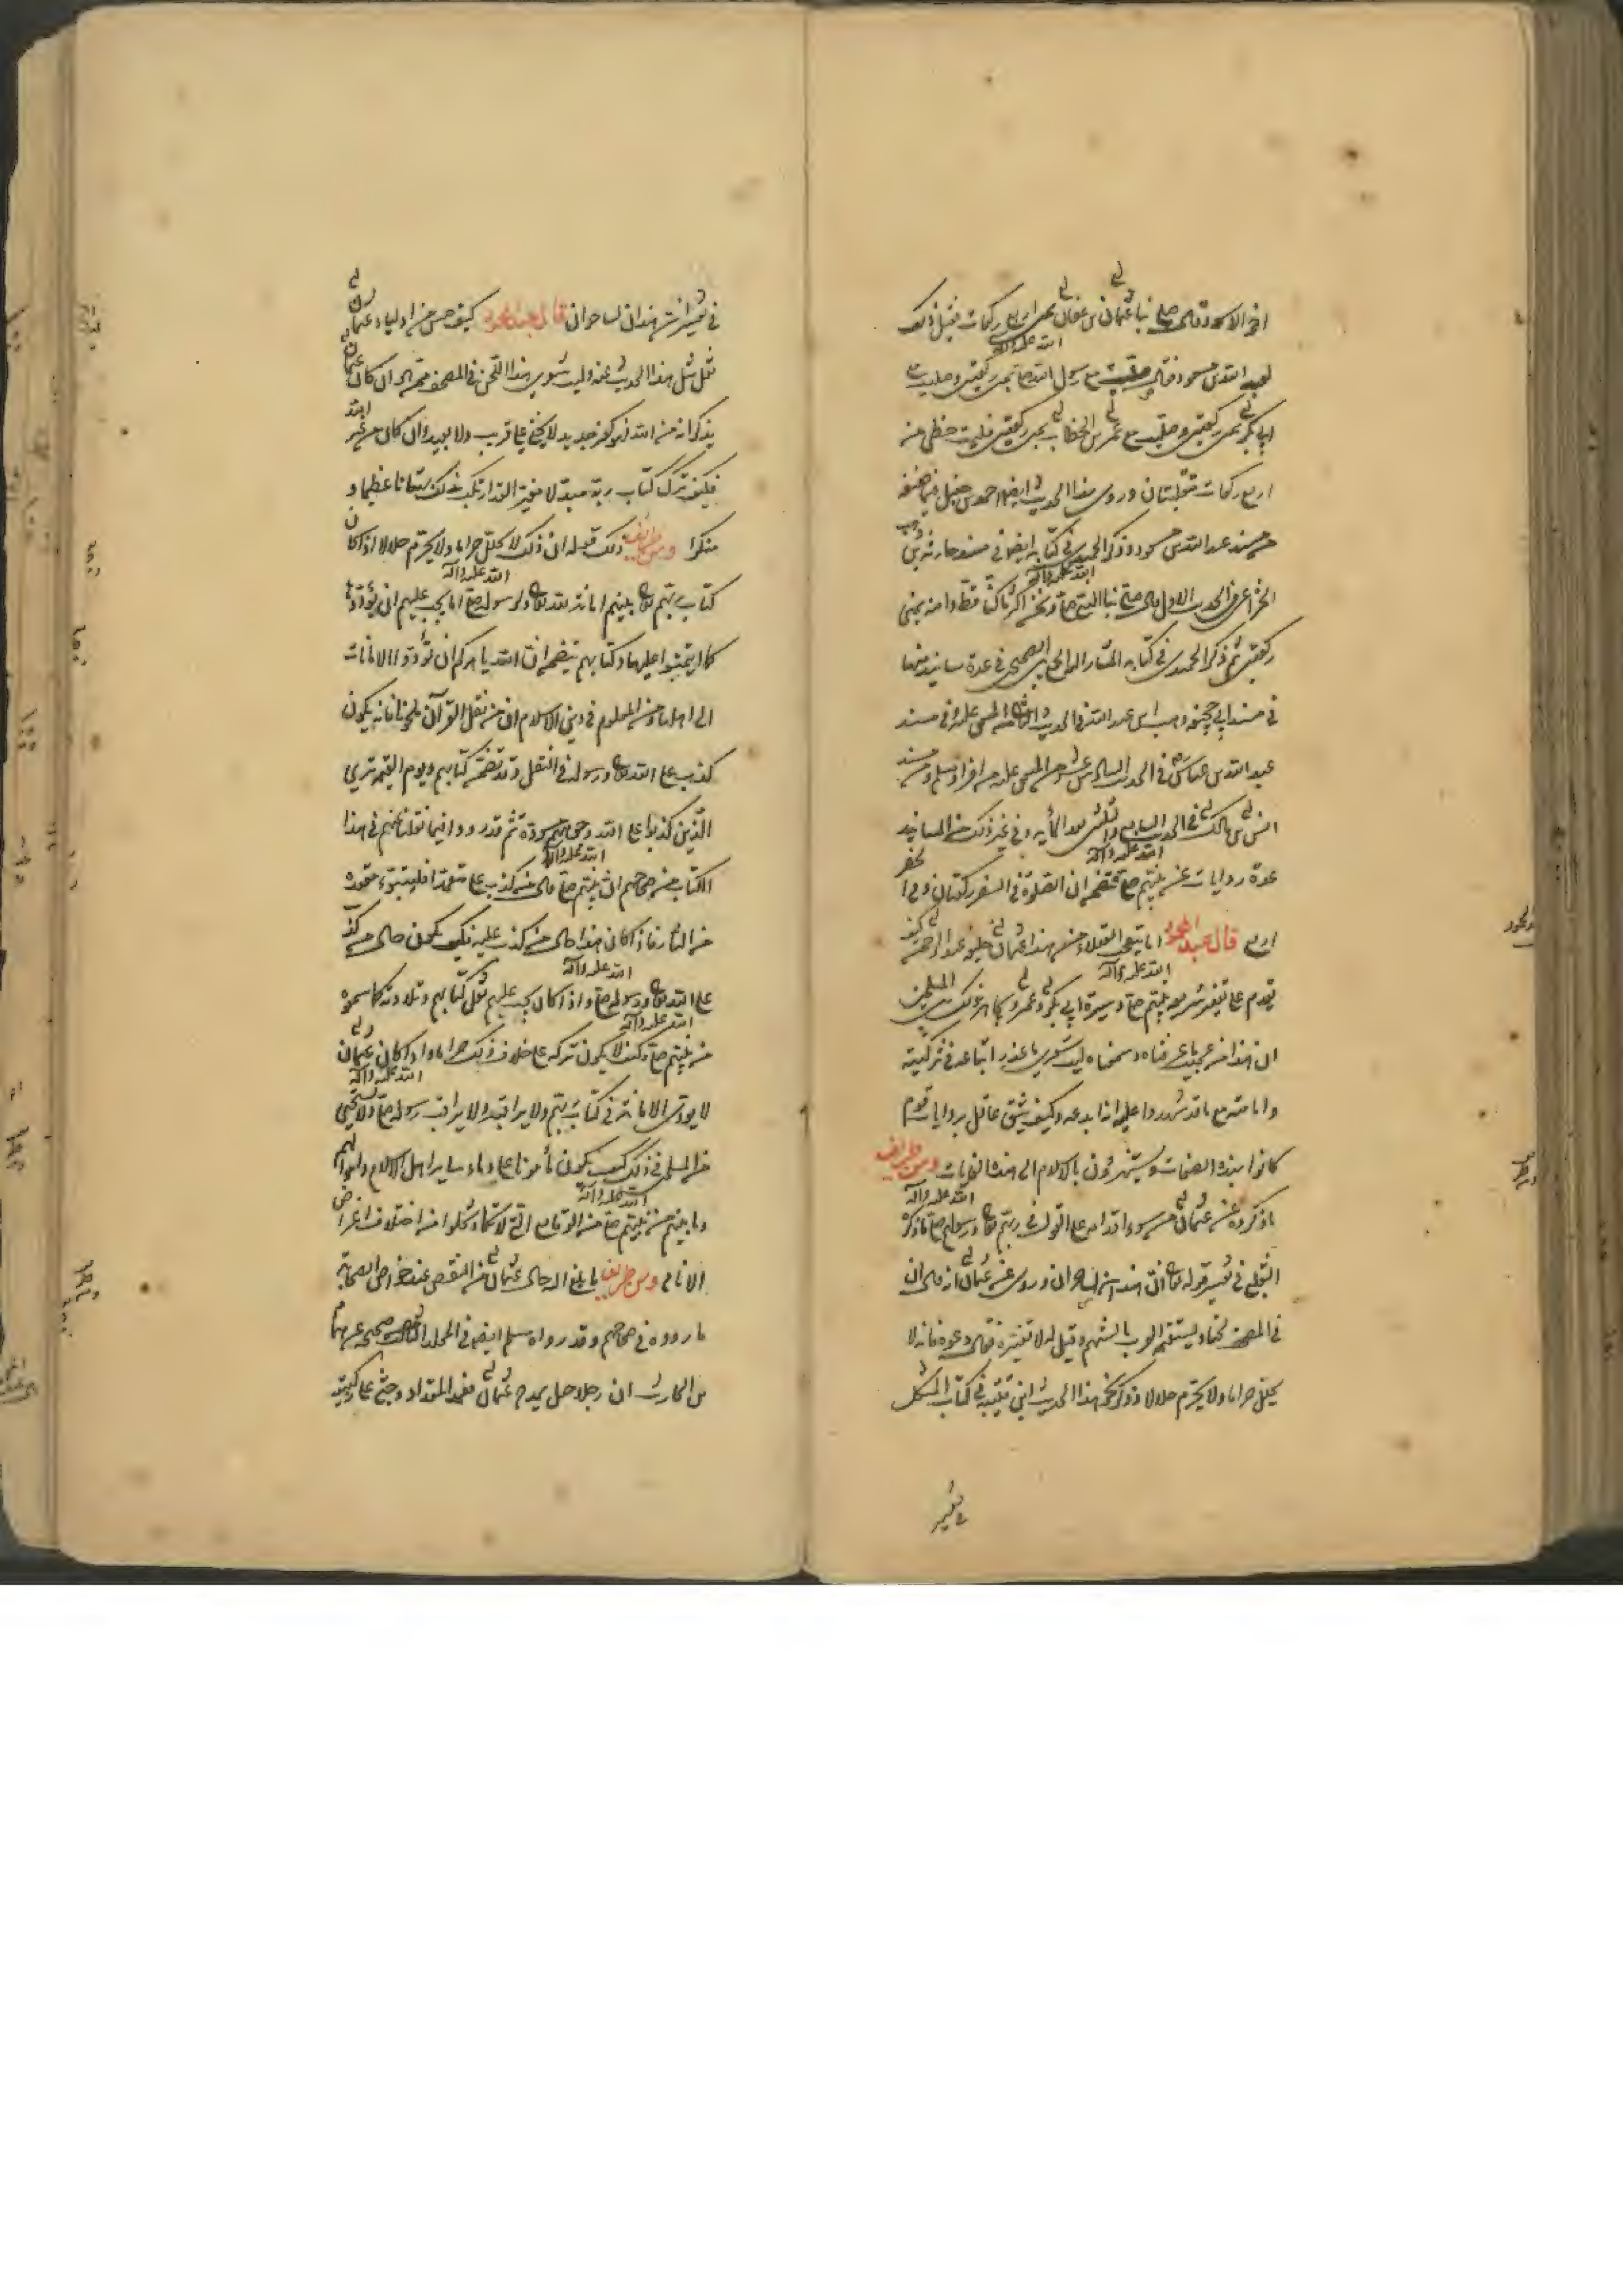 اخو الاسود قال صلى بنا عثمان بن عفان بمنى اربع ركعات فقيل ذلك
لعبد الله بن مسعود فقال صليت مع رسول الله صلى الله عليه وآله بمنى ركعتين وصليت مع
ابي بكر بمنى ركعتين وصليت مع عمر بن الخطاب بمنى ركعتين فليت حظي من
اربع ركعات متقبلتان وروى هذا الحديث ايضا احمد بن حنبل فيما
من مسند عبد الله بن مسعود وذكر الحميدي في كتابه ايضا في مسند حارثة بن وهب
الخزاعي في الحديث الاول قال صلى بنا النبي صلى الله عليه وآله ونحن اكثر ما كنا قط وامنه بمنى
ركعتين ثم ذكر الحميدي في كتابه المشار اليه الجمع بين الصحيحين في عدة مسانيد منها
في مسند ابي جحيفة وهب بن عبد الله في الحديث الثاني المتفق عليه وفي مسند
عبد الله بن عباس في الحديث السادس عشر من المتفق عليه من افراد مسلم ومن مسند
انس بن مالك في الحديث السابع والثلثين بعد المأية وفي غير ذلك من المسانيد
عدة روايات عن نبيهم صلى الله عليه وآله تتضمن ان الصلوة في السفر ركعتان وفي الحضر
اربع قال عبد المحمود اما يتعجب العقلاء من هذا عثمان خليفة عبد الرحمن كيف
تقدم على تغيير شريعة نبيهم صلى الله عليه وآله وسيرة ابي بكر وعمر وكابر في ذلك المسلمين
ان هذا من عجيب ما عرفناه وسمعناه ليت شعري ما عذر اتباعه في تزكيته
وامامته مع ما قد شهدوا عليه انه ابدعه وكيف يثق عاقل بروايات قوم
كانوا بهذه الصفات ويستهزؤن بالاسلام الى هذه الغايات ومن طريف
ما ذكروه عن عثمان من سوء اقدامه على القول في ربهم تعالى ورسولهم صلى الله عليه وآله ما ذكره
الثعلبي في تفسير قوله تعالى ان هذان لساحران وروى عن عثمان انه قال ان
في المصحف لحنا وستقيمه العرب بالسنتهم وقيل له الا تغيره فقال دعوه فانه لا
يحلل حراما ولا يحرم حلالا وذكر نحو هذا الحديث ابن قتيبة في كتاب المشكل
في تفسير
في تفسير ان هذان لساحران قال عبد المحمود كيف حسن من اولياء عثمان
نقل مثل هذا الحديث عنه وليت شعري هذا اللحن في المصحف ممن هو ان كان عثمان
يذكر انه من الله فهو كفر جديد لا يخفى على قريب ولا بعيد وان كان من غير الله
فكيف ترك كتاب ربه مبدلا مغيرا لقد ارتكب بذلك بهتانا عظيما و
منكرا ومن طريف ذلك قوله ان ذلك لا يحلل حراما ولا يحرم حلالا اذا كان
كتاب ربهم تعالى بلغهم امانة لله تعالى ولرسوله صلى الله عليه وآله اما يجب عليهم ان يؤدوها
كما ايتمنوا عليها وكتابهم يتضمن ان الله يامركم ان تؤدوا الامانات
الى اهلها ومن المعلوم في دين الاسلام ان من نقل القرآن ملحونا فانه يكون
كذب على الله تعالى ورسوله في النقل وقد تضمن كتابهم ويوم القيمة ترى
الذين كذبوا على الله وجوههم مسودة ثم قد رووا فيما نقلناه عنهم في هذا
الكتاب من صحاحهم ان نبيهم صلى الله عليه وآله قال من كذب علي متعمدا فليتبوء مقعده
من النار فاذا كان هذا حال من كذب عليه فكيف يكون حال من كذب
على الله تعالى ورسوله صلى واذا كان يجب عليهم نقل كتابهم وتلاوته كما سمعوه
من نبيهم صلى الله عليه وآله فكيف لا يكون تركه على خلاف ذلك حراما واذا كان عثمان
لا يؤدى الامانة في كتاب ربهم ولا يراقبه ولا يراقب رسوله صلى الله عليه وآله ولا يستحيي
من المسلمين في ذلك كيف يكون مأمونا على دماء وساير اهل الاسلام واموالهم
وما بلغهم من نبيهم صلى الله عليه وآله من الوقايع التي لا تتم وتخلو من اختلاف اغراض
الانام ومن طريف ما بلغ اليه حال عثمان من النقص عند خواص الصحابة
ما رووه في صحاحهم وقد رواه مسلم ايضا في المجلد الثالث من صحيحه عن همام
بن الحارث ان رجلا جعل يمدح عثمان فعمد المقداد وجثى على ركبتيه